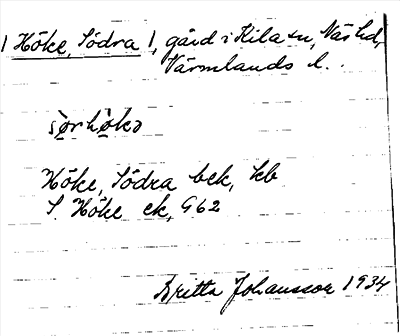 1 Höke, Södra 1, gård i Kila sn, Näs hd,
Värmlands l.
sørhökə
Höke, Södra bek, kb
S. Höke ek, G62
Britta Johansson 1934